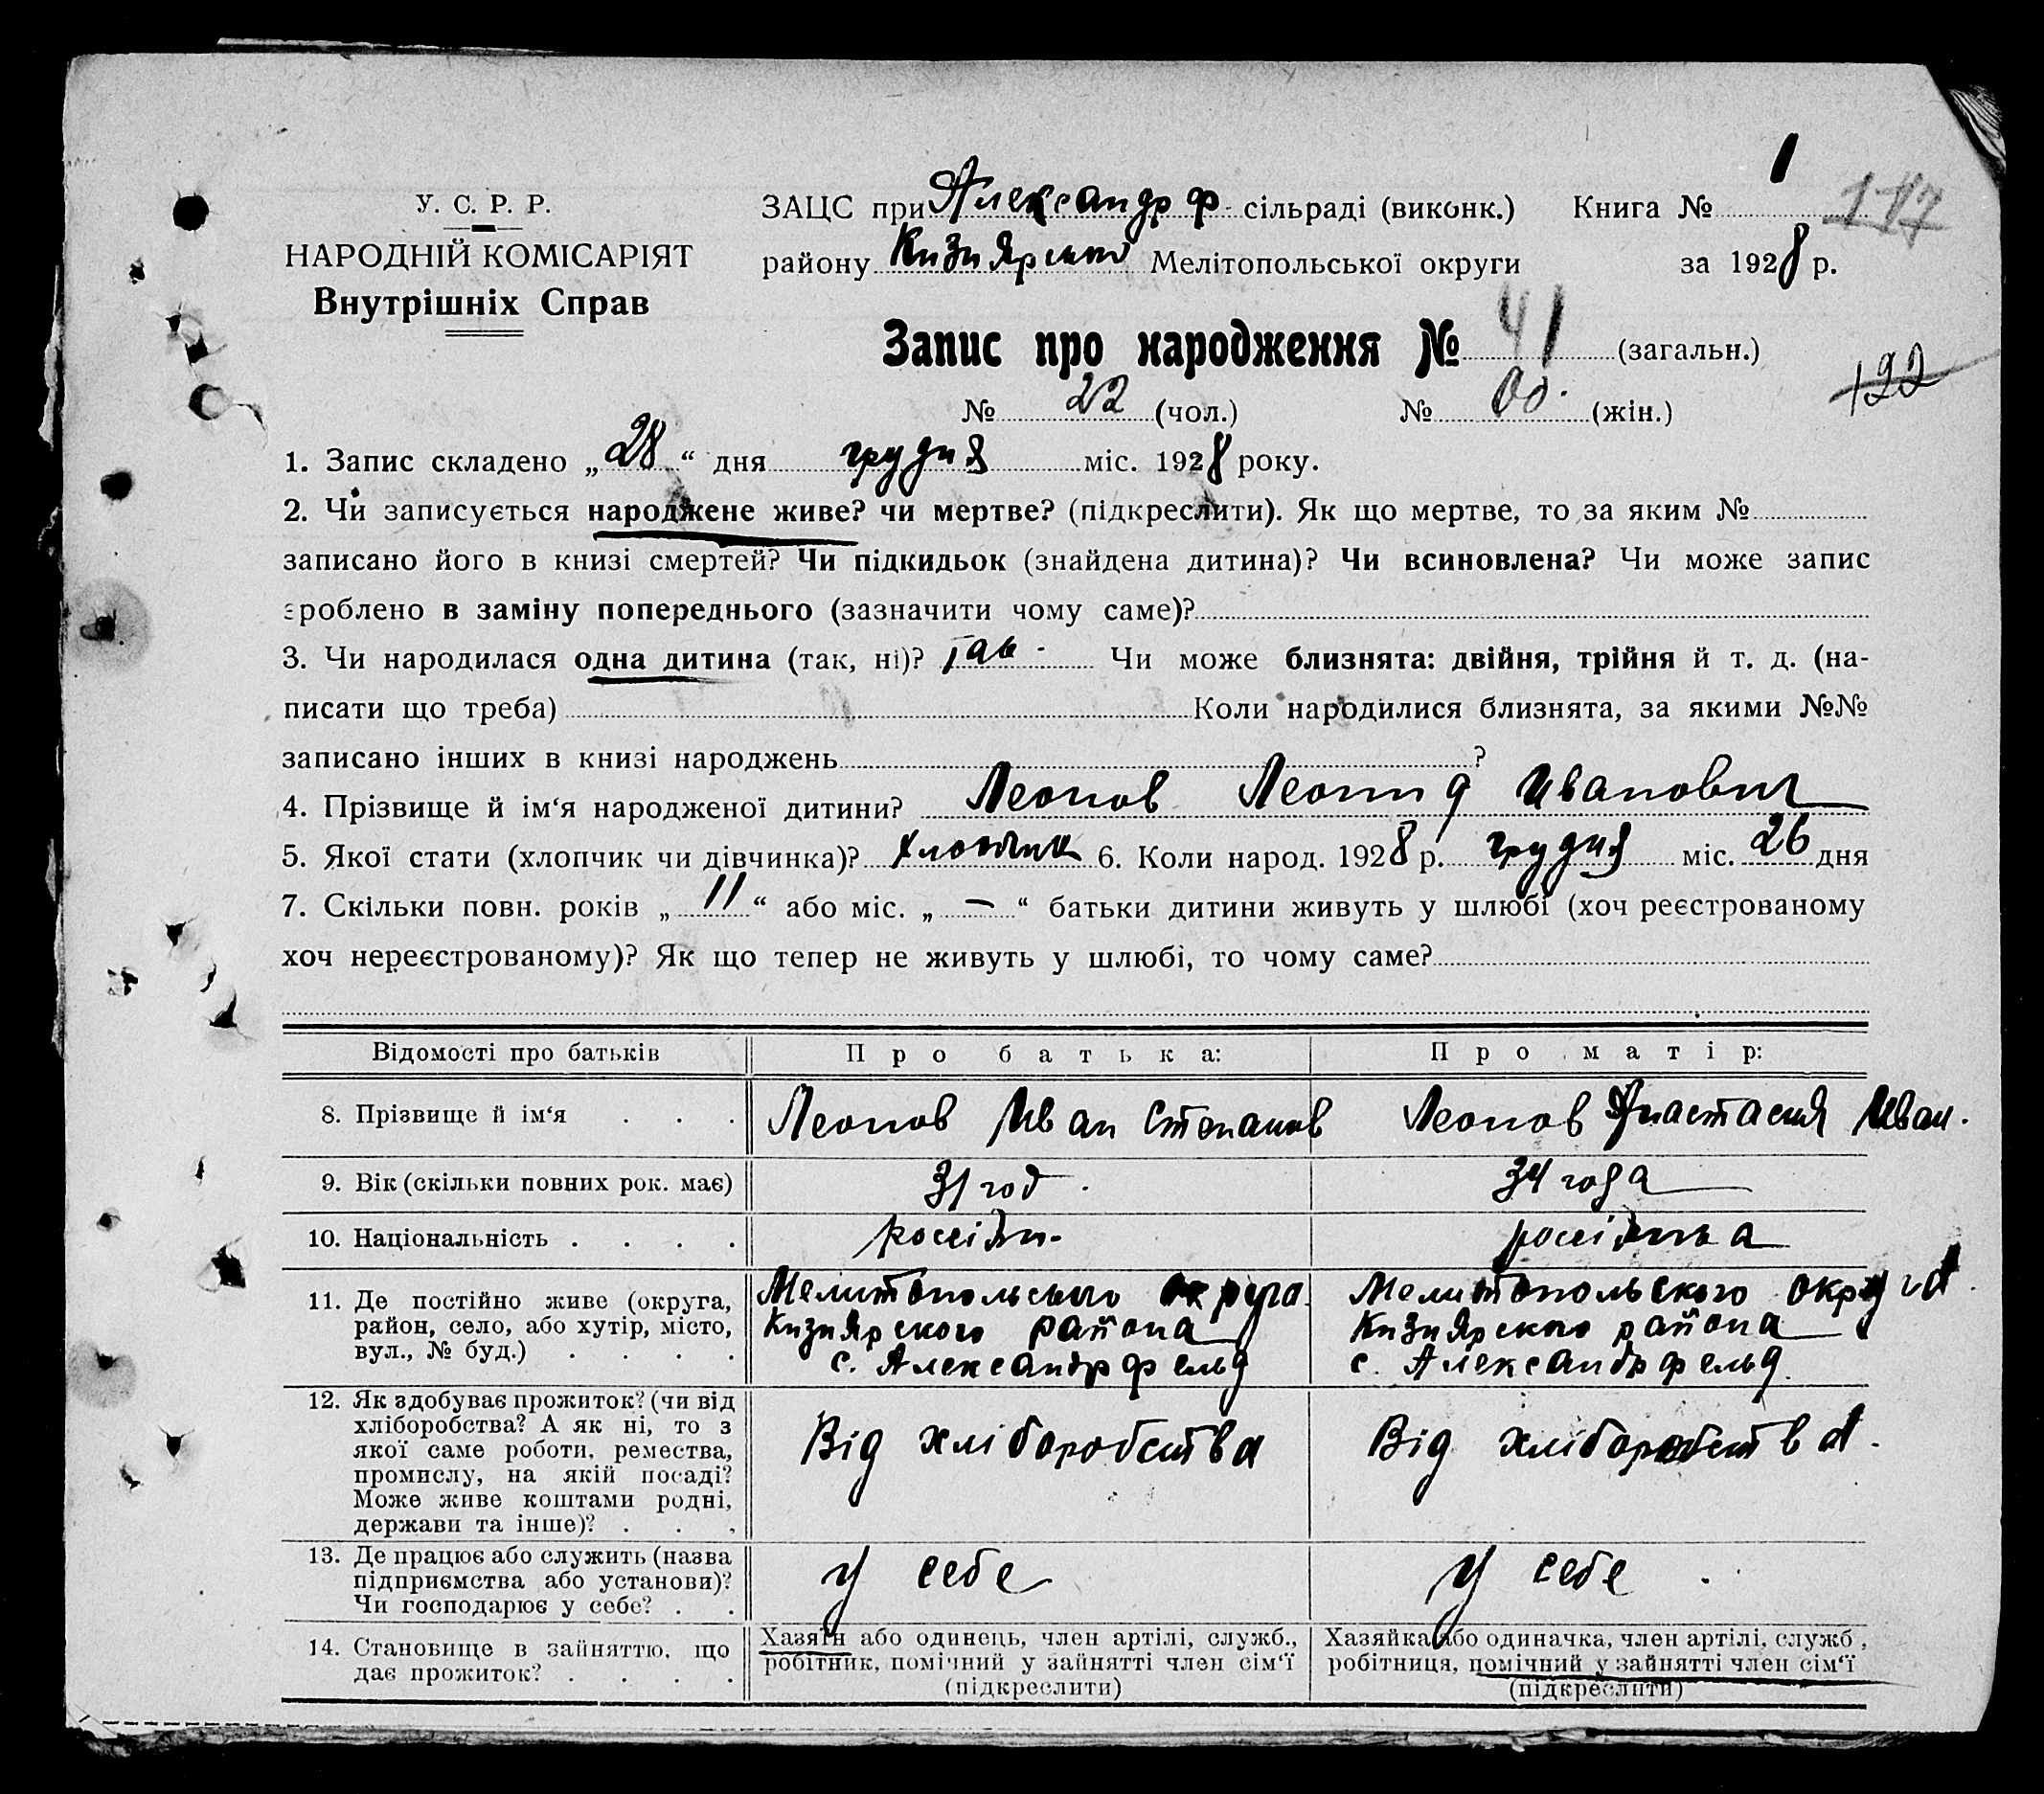 У. С. Р. Р.
НАРОДНІЙ КОМІСАРІЯТ
Внутрішніх Справ
ЗАЦС при Александрф. сільраді (виконк.) Книга № 1 117
району Кизиярського Мелітопольської округи за 1928 р.
Запис про народження № 41 (загальн.)
122
№ 22 (чол.) № 00. (жін.)
1. Запис складено „28“ дня грудня міс. 1928 року.
2. Чи записується народжене живе? чи мертве? (підкреслити). Як що мертве, то за яким №
записано його в книзі смертей? Чи підкидьок (знайдена дитина)? Чи всиновлена? Чи може запис
зроблено в заміну попереднього (зазначити чому саме)?
3. Чи народилася одна дитина (так, ні)? так. Чи може близнята: двійня, трійня й т. д. (на-
писати що треба) Коли народилися близнята, за якими №№
записано інших в книзі народжень ?
4. Прізвище й ім‘я народженої дитини? Леонов Леонид Иванович
5. Якої стати (хлопчик чи дівчинка)? хлопчик 6. Коли народ. 1928 р. грудня міс. 26 дня
7. Скільки повн. років „11“ або міс. „—“ батьки дитини живуть у шлюбі (хоч реєстрованому
хоч нереєстрованому)? Як що тепер не живуть у шлюбі, то чому саме?
Відомості про батьків
Про батька:
Про матір:
8. Прізвище й ім‘я . . .
Леонов Иван Степанов
Леонов Анастасия Иван.
9. Вік (скільки повних рок. має)
31 год.
34 года
10. Національність . . . .
россіян.
россіянка
11. Де постійно живе (округа,
район, село, або хутір, місто,
вул., № буд.) . . . .
Мелитопольського округа.
Кизиярского района
с. Александрфельд
Мелитопольского округа.
Кизиярского района
с. Александрфельд.
12. Як здобуває прожиток? (чи від
хліборобства? А як ні, то з
якої саме роботи, ремества,
промислу, на якій посаді?
Може живе коштами родні,
держави та інше)? . . .
Від хліборобства
Від хліборобства.
13. Де працює або служить (назва
підприємства або установи)?
Чи господарює у себе? . .
у себе
у себе .
14. Становище в зайняттю, що
дає прожиток? . . . .
Хазяїн або одинець, член артілі, служб.,
робітник, помічний у зайнятті член сім‘ї
(підкреслити)
Хазяйка або одиначка, член артілі, служб,
робітниця, помічний у зайнятті член сім‘ї
(підкреслити)